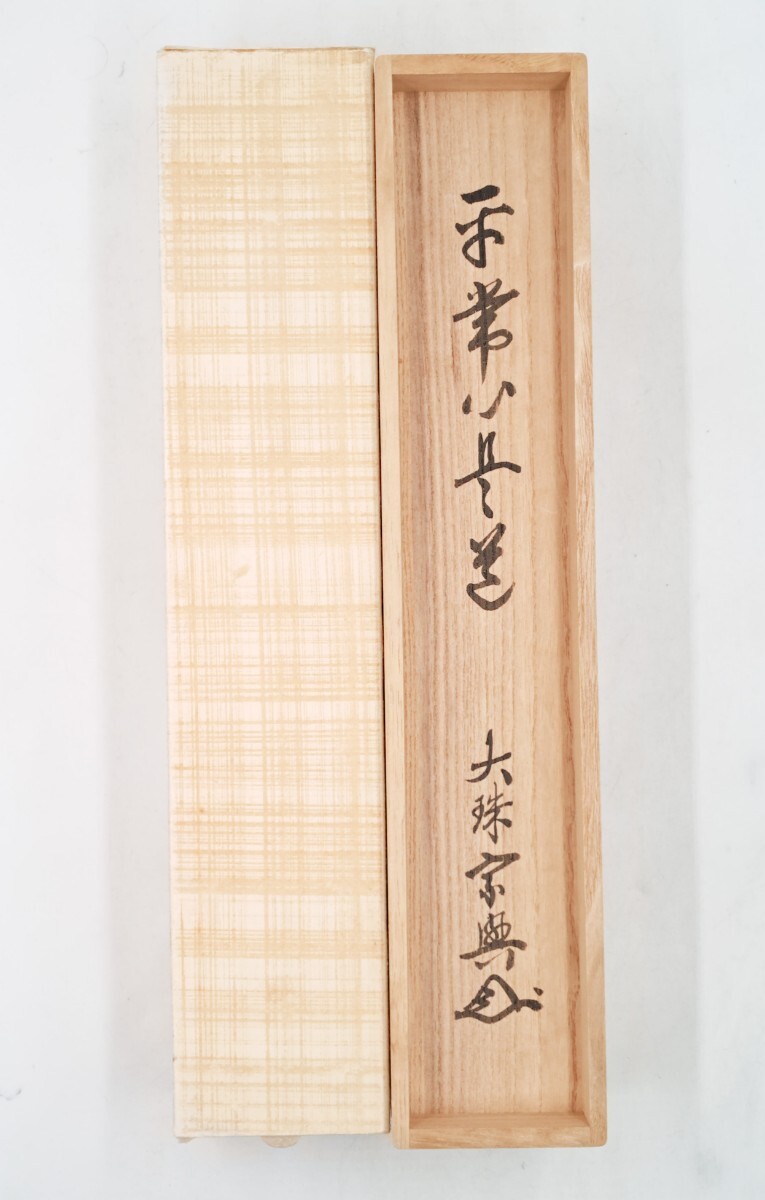 平常心是道
大珠宗典